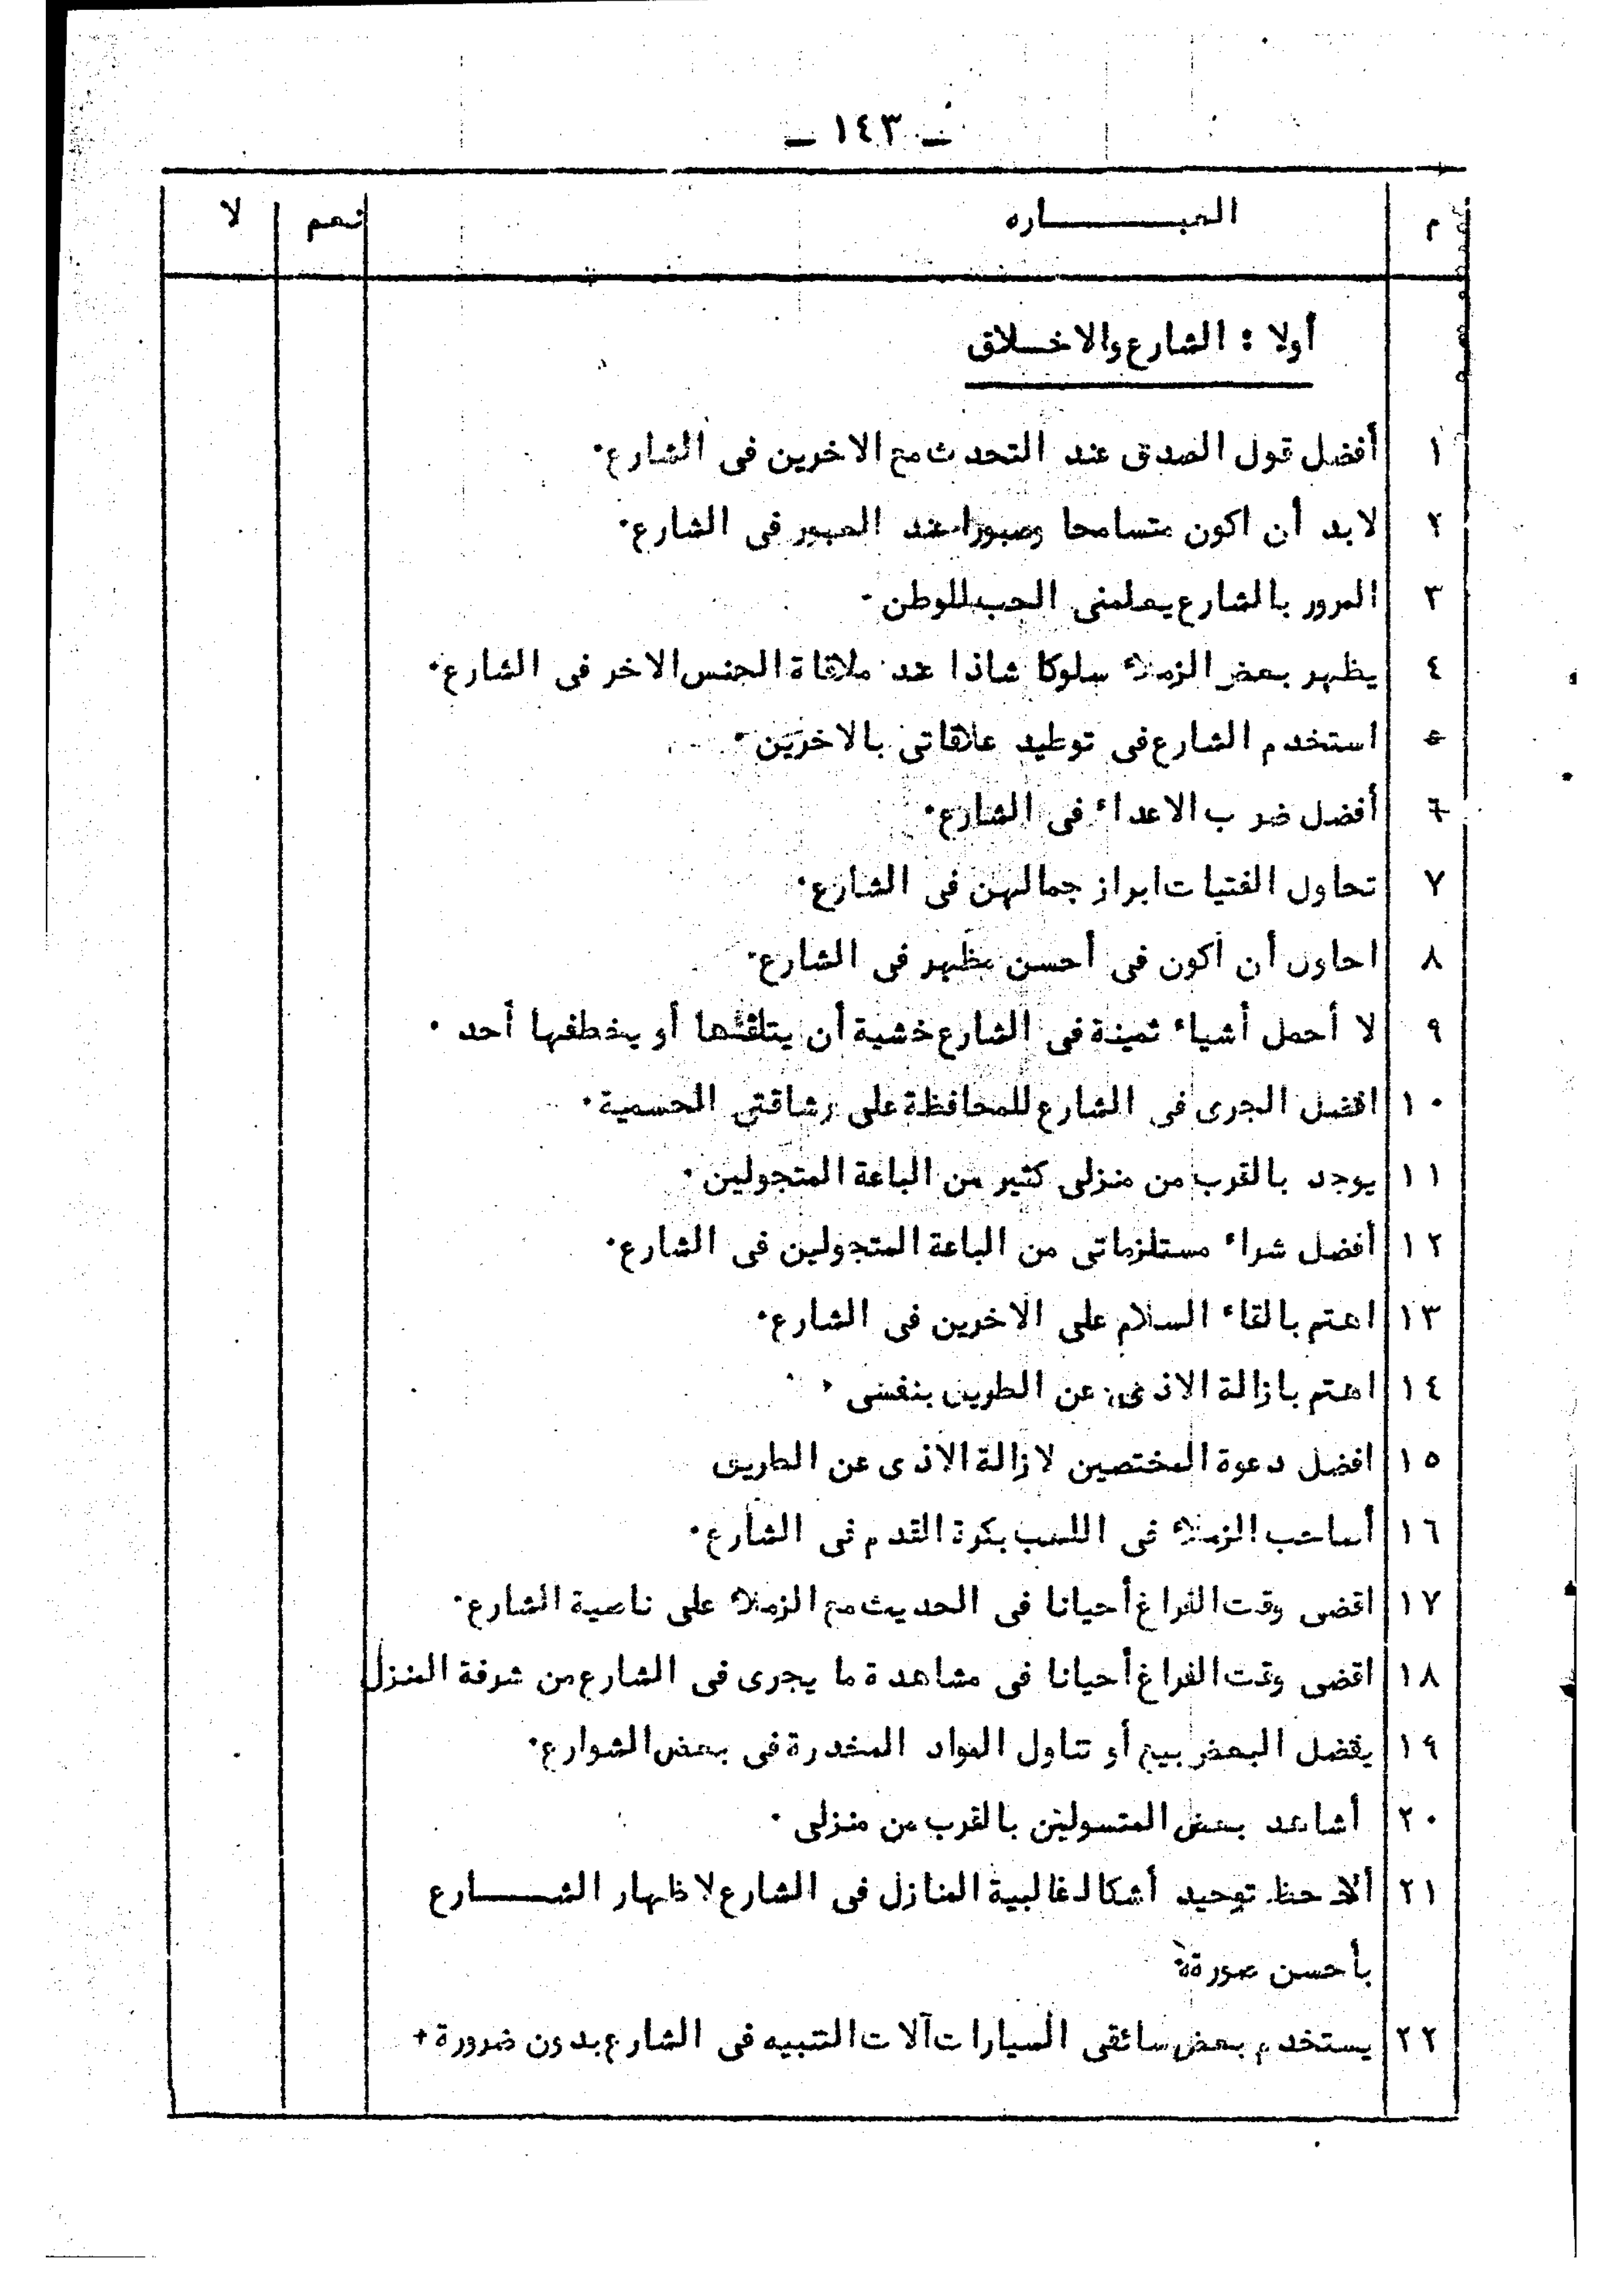 ـ ١٤٣ ـ
م العبـــــــاره نعم لا
أولا : الشارع والاخـلاق
١ أفضل قول الصدق عند التحدث مع الاخرين فى الشارع٠
٢ لابد أن اكون متسامحا وصبورا عند العبور فى الشارع٠
٣ المرور بالشارع يعلمنى الحب للوطن ٠
٤ يظهر بعض الزملاء سلوكا شاذا عند ملاقاة الجنس الاخر فى الشارع٠
٥ استخدم الشارع فى توطيد علاقاتى بالاخرين ٠
٦ أفضل ضرب الاعداء فى الشارع٠
٧ تحاول الفتيات ابراز جمالهن فى الشارع٠
٨ احاول أن أكون فى أحسن مظهر فى الشارع٠
٩ لا أحمل أشياء ثمينة فى الشارع خشية أن يتلفها أو يخطفها أحد ٠
١٠ افضل الجرى فى الشارع للمحافظة على رشاقتى الجسمية٠
١١ يوجد بالقرب من منزلى كثير من الباعة المتجولين ٠
١٢ أفضل شراء مستلزماتى من الباعة المتجولين فى الشارع٠
١٣ اهتم بالقاء السلام على الاخرين فى الشارع٠
١٤ اهتم بازالة الاذى عن الطريق بنفسى ٠
١٥ افضل دعوة المختصين لازالة الاذى عن الطريق
١٦ أصاحب الزملاء فى اللعب بكرة القدم فى الشارع٠
١٧ اقضى وقت الفراغ أحيانا فى الحديث مع الزملاء على ناصية الشارع٠
١٨ اقضى وقت الفراغ أحيانا فى مشاهدة ما يجرى فى الشارع من شرفة المنزل
١٩ يفضل البعض بيع أو تناول المواد المخدرة فى بعض الشوارع٠
٢٠ أشاهد بعض المتسولين بالقرب من منزلى ٠
٢١ ألاحظ توحيد أشكال غالبية المنازل فى الشارع لاظهار الشـــــارع
بأحسن صورة٠
٢٢ يستخدم بعض سائقى السيارات آلات التنبيه فى الشارع بدون ضرورة٠